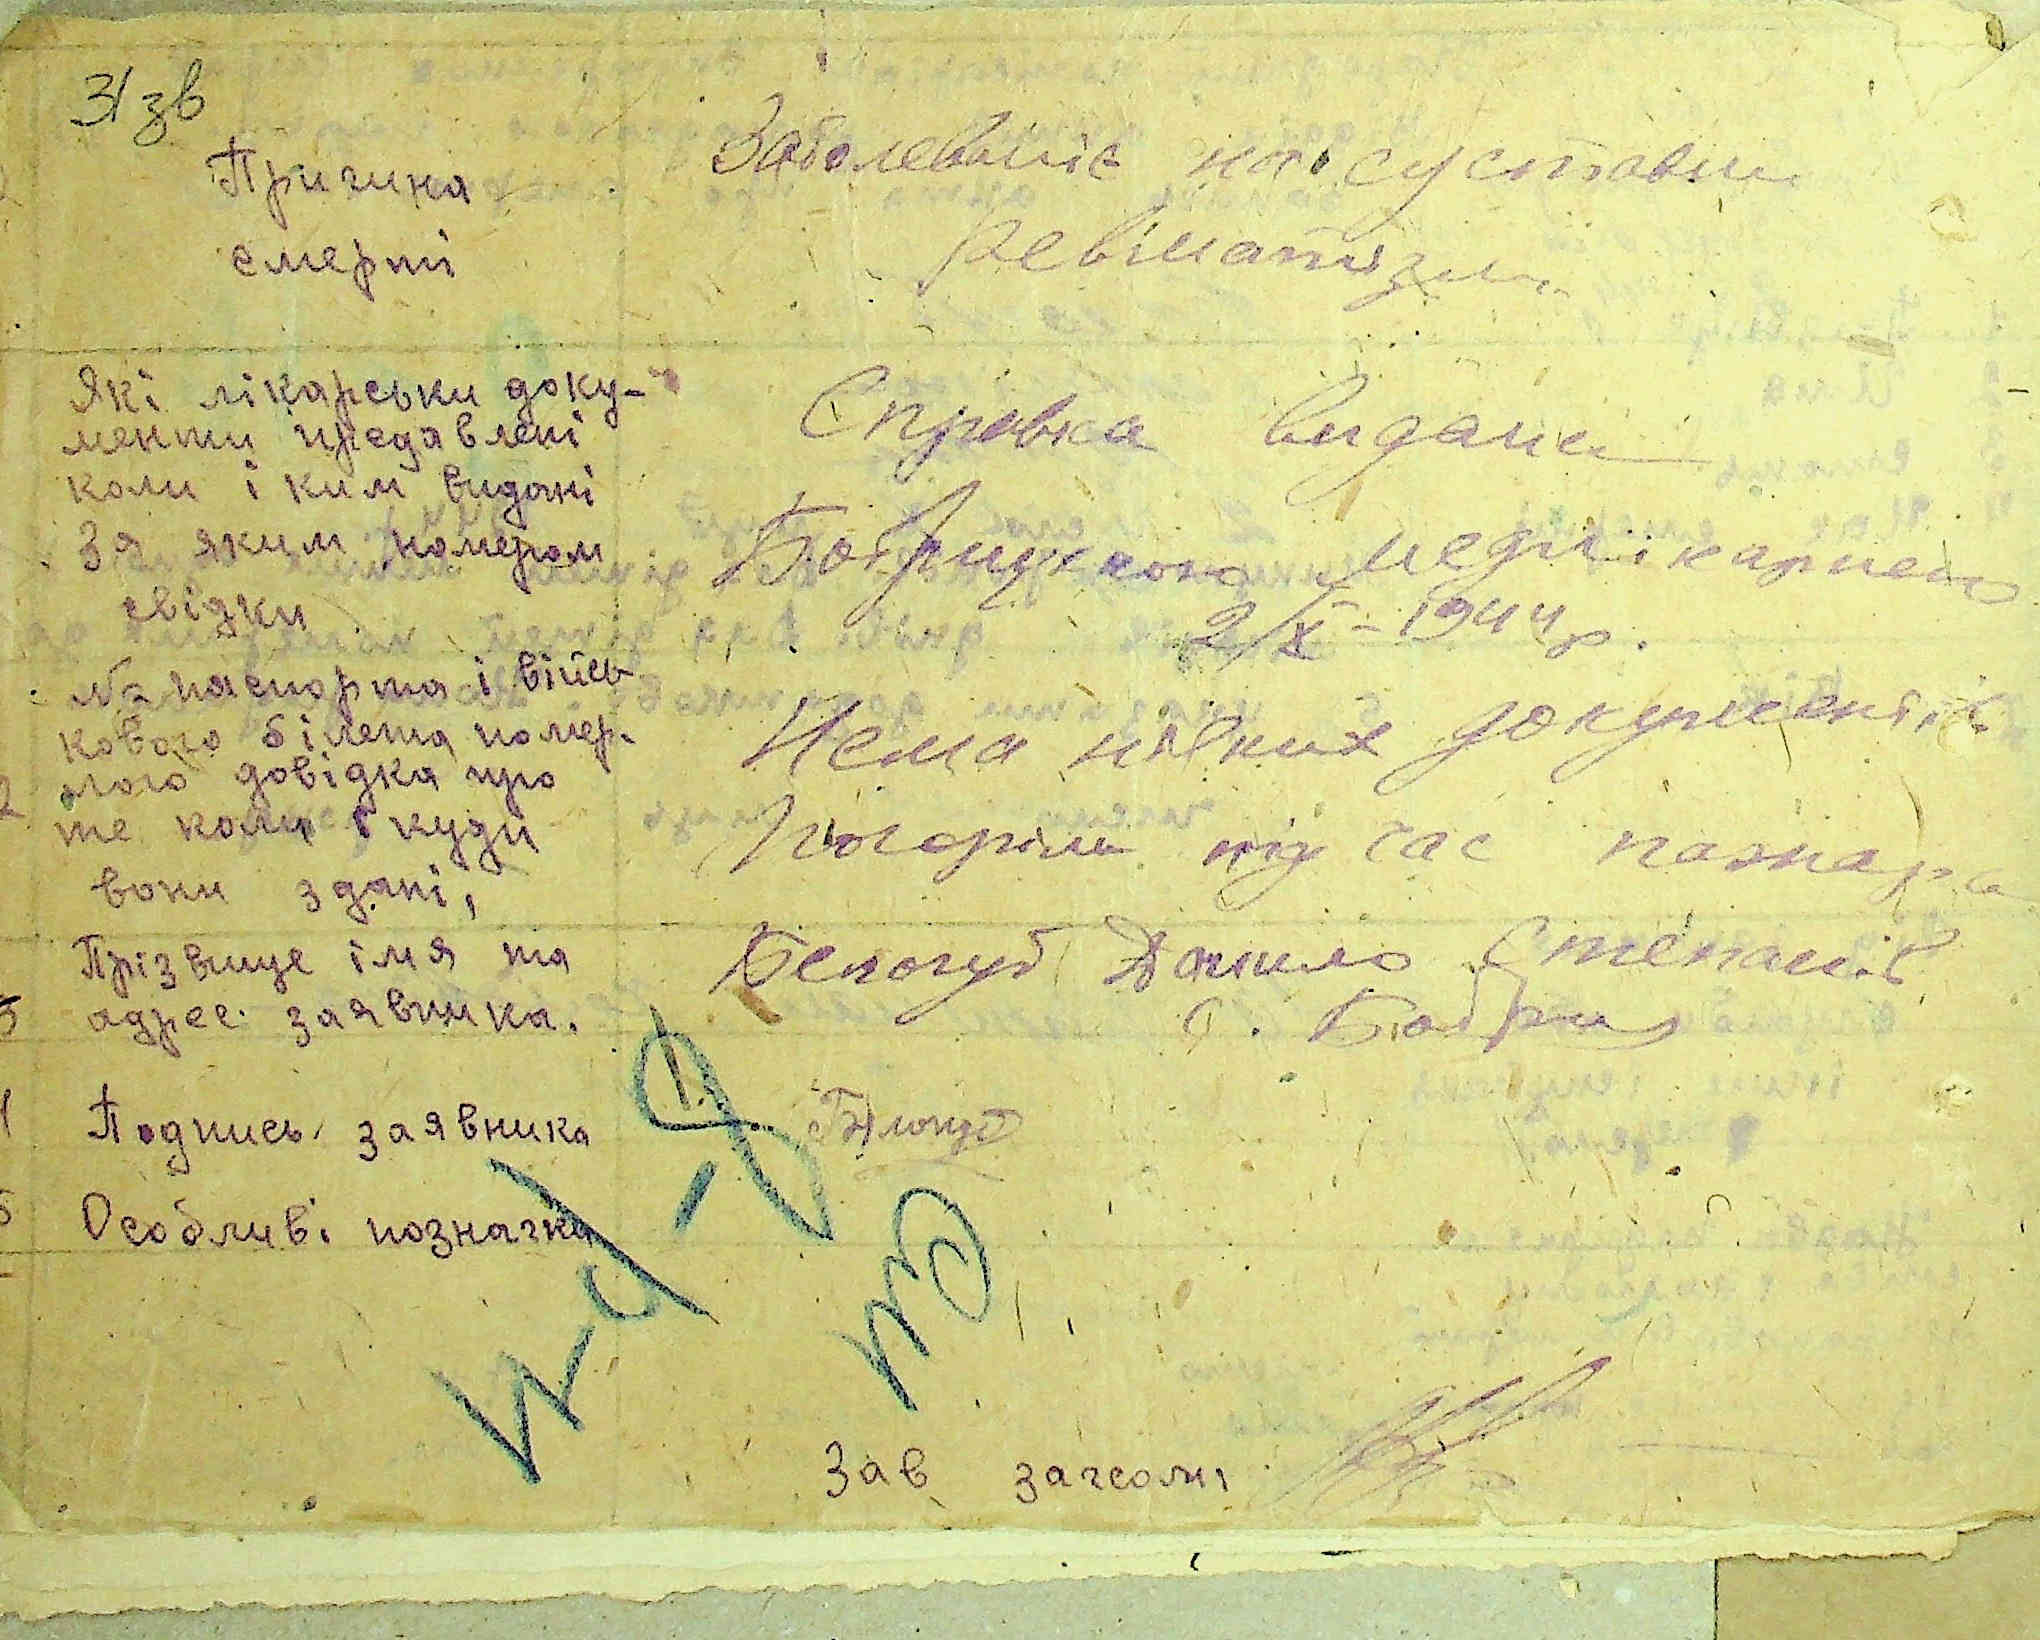 31 зв
Причина
смерті
Заболеваніє на суставни
ревіматизм
Які лікарськи доку-
менти предявлені
коли і ким видані
За яким номером
свідки
Справка видана
Бобрицкою медлікарнею
2/X - 1944 р.
№ паспорта і війсь
кового білета помер-
лого довідка про
те коли і куди
вони здані,
Нема ніяких документів
Погоріли під час пожара
Прізвище імя та
адрес заявника.
Белогуб Данило Степанів
с. Бобрик
Подпись заявника
Білогуб
Особливі позначка
Зав загсом